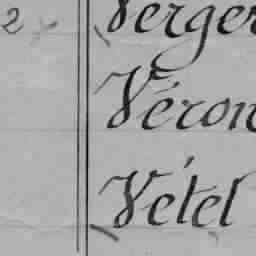 2 Verger
Véron
Vétel